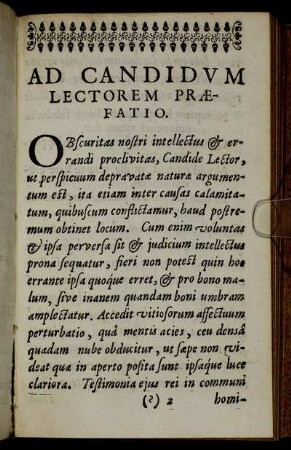 AD CANDIDVM
LECTOREM PRÆ-
FATIO.
OBscuritas nostri intellectus & er-
randi proclivitas, Candide Lector,
ut perspicuum depravatæ naturæ argumen-
tum est, ita etiam inter causas calamita-
tum, quibuscum conflictamur, haud postre-
mum obtinet locum. Cum enim voluntas
& ipsa perversa sit & judicium intellectus
prona sequatur, fieri non potest quin hoc
errante ipsa quoque erret, & pro bono ma-
lum, sive inanem quandam boni umbram
amplectatur. Accedit vitiosorum affectuum
perturbatio, quâ mentis acies, ceu densâ
quadam nube obducitur, ut sæpe non vi-
deat quæ in aperto posita sunt ipsaque luce
clariora. Testimonia ejus rei in communi
(?) 2 homi-